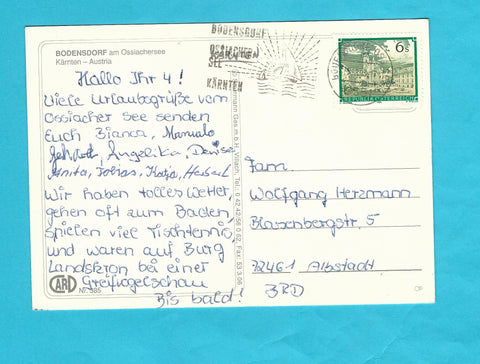 BODENSDORF am Ossiachersee
Kärnten – Austria
Hallo Ihr 4!
Viele Urlaubsgrüße vom
Ossiacher See senden
Euch Bianca, Manuela
Angelika, Denise
Anita, Tobias, Katja, Herbert
Wir haben tolles Wetter
gehen oft zum Baden,
spielen viel Tischtennis
und waren auf Burg
Landskron bei einer
Greifvogelschau
Bis bald!
CARD
Nr. 385
BODENSDORF
OSSIACHER
SEE
KÄRNTEN
6 S
REPUBLIK ÖSTERREICH
Fam.
Wolfgang Herzmann
Blasenbergstr. 5
72461 Albstadt
BRD